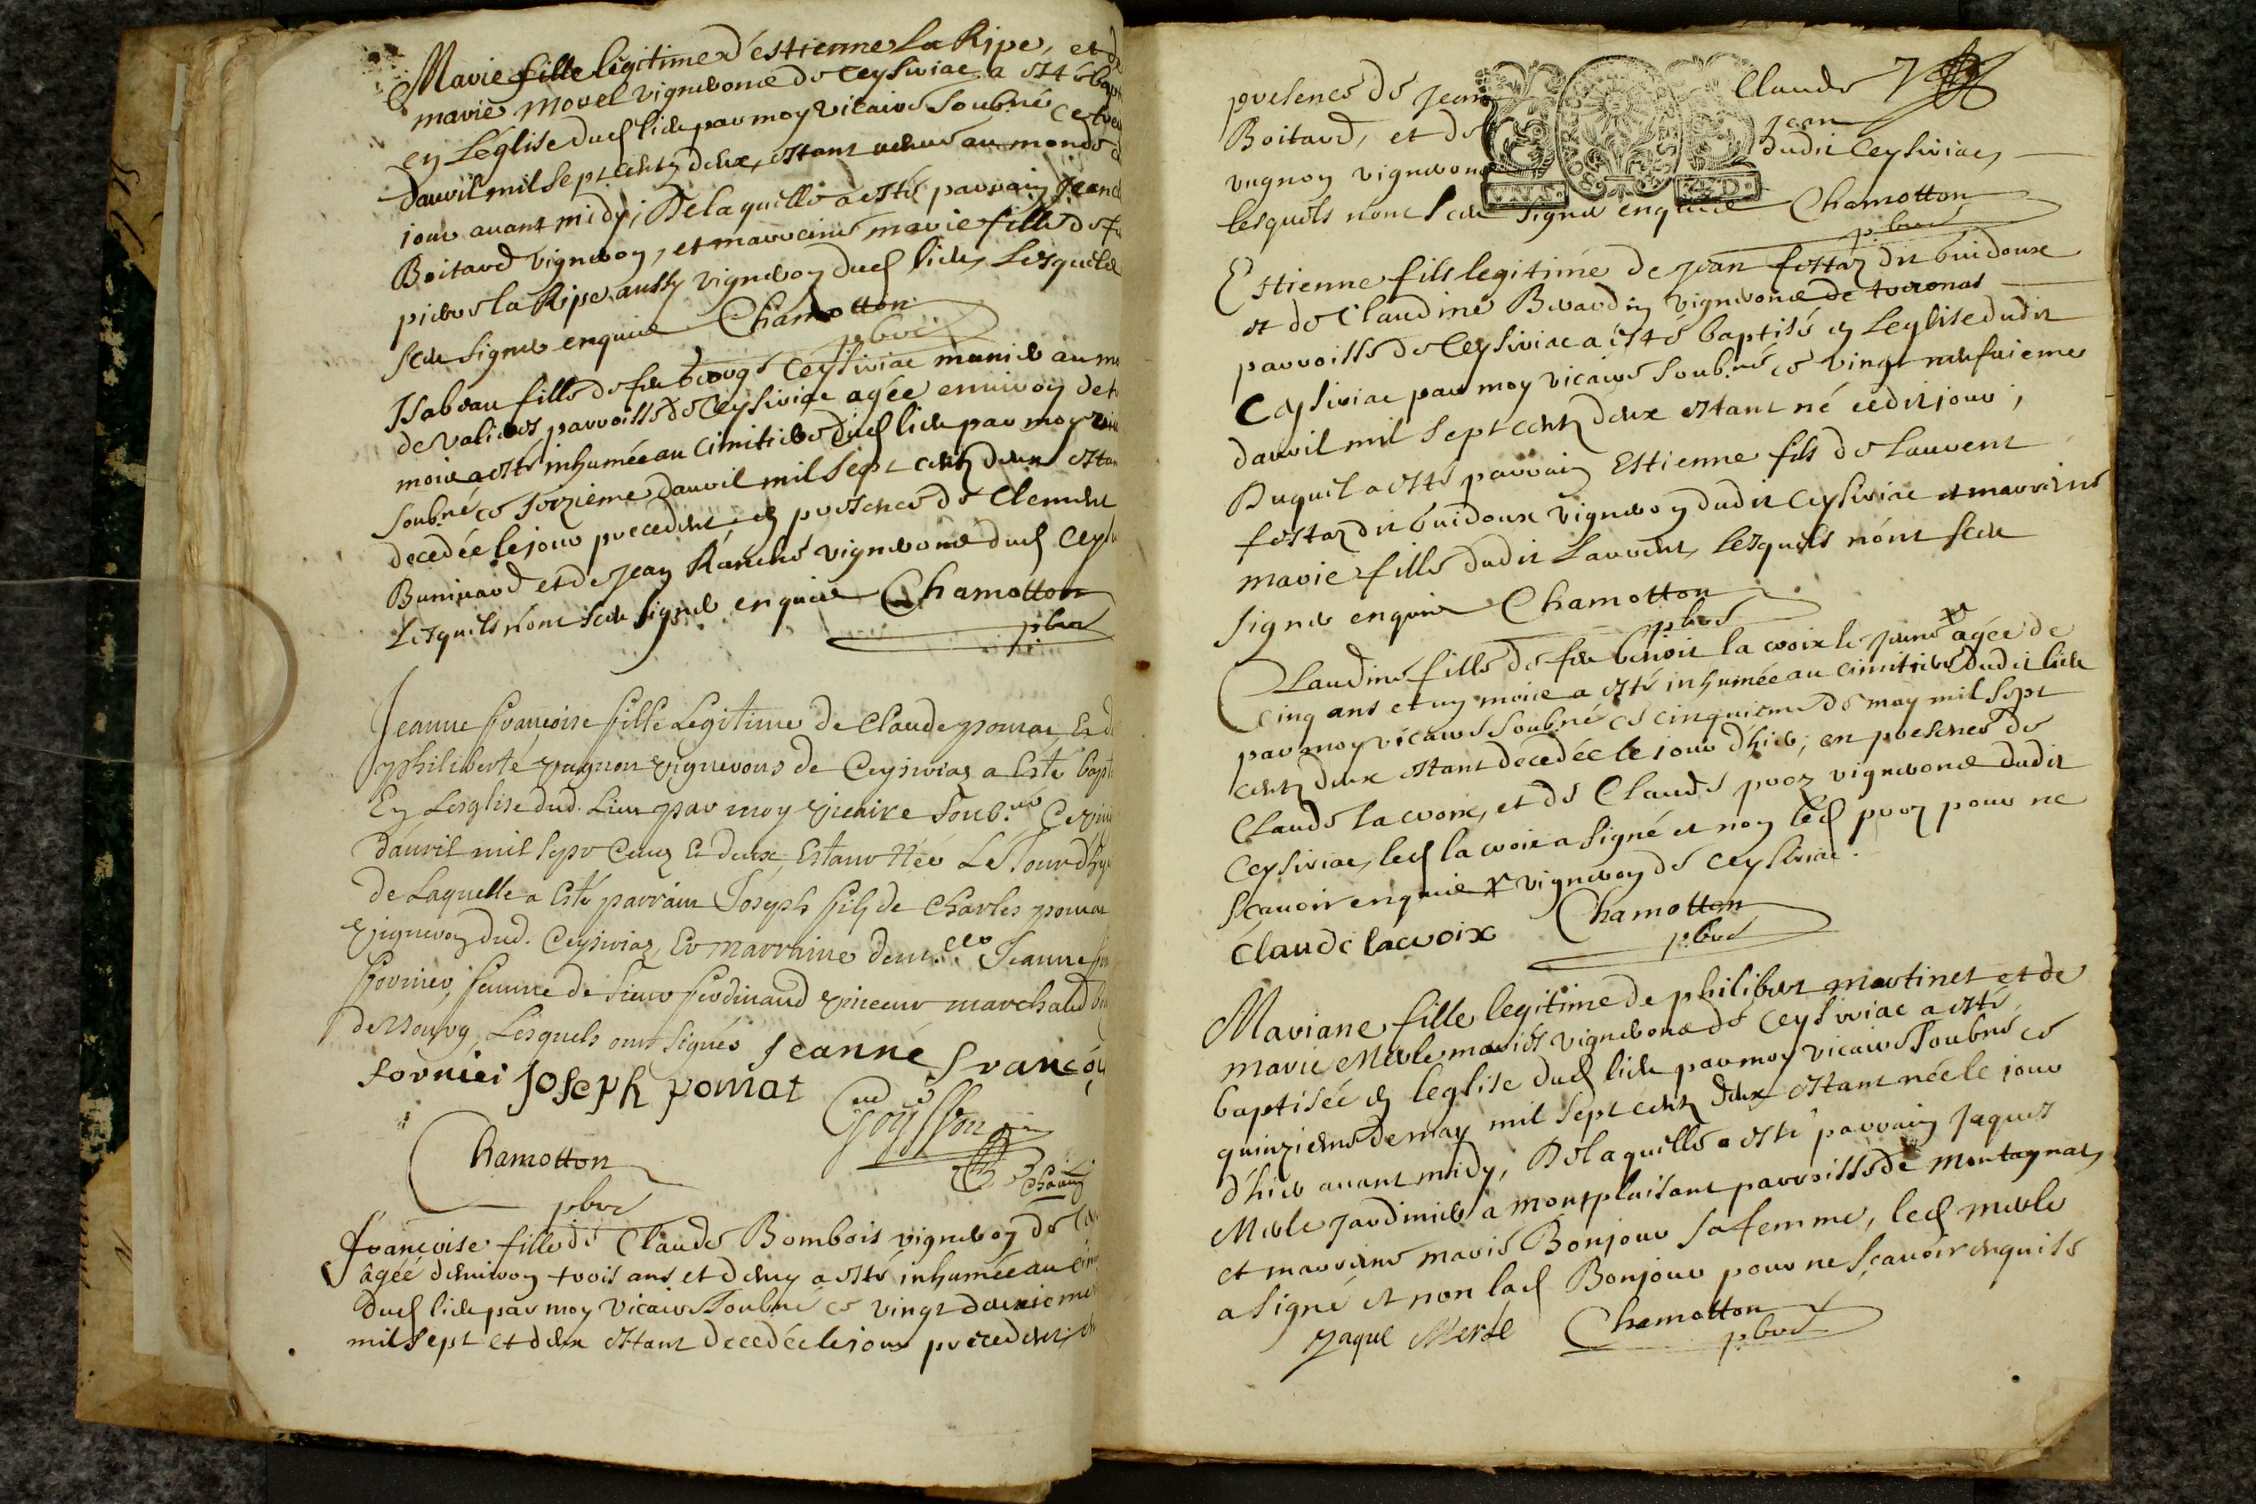 Marie fille legitime d'estienne la Ripe, et d
marie morel vignerons de Ceysiriac a esté bap
en L'église dud lieu par moy vicaire soubné ce
davril mil sept centz deux, estant venue au monde
jour avant midy, De laquelle a esté parrain jean
Boitard vigneron, et marraine marie fille de f
pierre la Ripe aussy vigneron dud lieu, Lesquels
sceu signer enquis Chamotton
pbre
Isabeau fille de feu Ceysiriac
de parroisse de Ceysiriac agée environ de
mois a esté inhumée au cimitiere dud lieu par moy
soubné ce davril mil sept centz deux estan
decedée le jour precedent, en presence de Clement
et de jean vignerons dud Cey
Lesquels n'ont sceu signer enquis Chamotton
pbre
Jeanne françoise fille Legitime de Claude pomat, Et d
philiberte vugnon vignerons de Ceysiriaz a Esté bapt
En Lesglise dud. Lieu par moy vicaire soub.né Ce
d'avril mil sept Cens Et deux Estant Née Le Jour d'hy
de Laquelle a Esté parrain Joseph fils de Charles pomat
vigneron dud. Ceysiriaz, Et marraine dem.lle Jeanne
fornier, femme de sieur ferdinand vincent marchand
de Bourg, Lesquels ont signés Jeanne françoi
fornier Joseph pomat
Chamotton
pbre
françoise fille de Claude Bombois vigneron de
âgée d'environ trois ans et demy a esté inhumée au cim
dud lieu par moy vicaire soubné ce vingt
mil sept et deux estant decedée le jour precedent,
presence de jean Claude
Boitard, et de jean
vugnon vignerons dudit Ceysiriac,
lesquels n'ont sceu signer enquis Chamotton
pbre
Estienne fils legitime de jean festaz dit buidoux
et de Claudine Beaudin vignerons de
parroisse de Ceysiriac a esté baptisé en L'eglise dudit
Ceysiriac par moy vicaire soub.né ce vingt neufuieme
davril mil sept centz deux estant né cedit jour,
Duquel a esté parrain Estienne fils de Laurent
festaz dit buidoux vigneron dudit Ceysiriac et marraine
marie fille dudit Laurent, lesquels n'ont sceu
signer enquis Chamotton
pbre
Claudine fille de feu benoit la croix le jeune x agée de
cinq ans et un mois a esté inhumée au cimitiere dudit lieu
par moy vicaire soubné ce cinquieme de may mil sept
centz deux estant decedée le jour d'hier, en presence de
Claude la croix, et de Claude proz vignerons dudit
Ceysiriac, led la croix a signé et non led proz pour ne
scavoir enquis x vigneron de Ceysiriac.
Claude lacroix Chamotton
pbre
Mariane fille legitime de philibert martinet et de
marie Merle mariés vignerons de Ceysiriac a esté
baptisée en l'eglise dud lieu par moy vicaire soubné ce
quinzieme de may mil sept centz deux estant née le jour
d'hier avant midy, De laquelle a esté parrain jaques
Merle jardinier a montplaisant parroisse de montagnat,
et marraine marie Bonjour sa femme, led merle
a signé et non lad Bonjour pour ne scavoir enquise
jaque Merle Chamotton
pbre